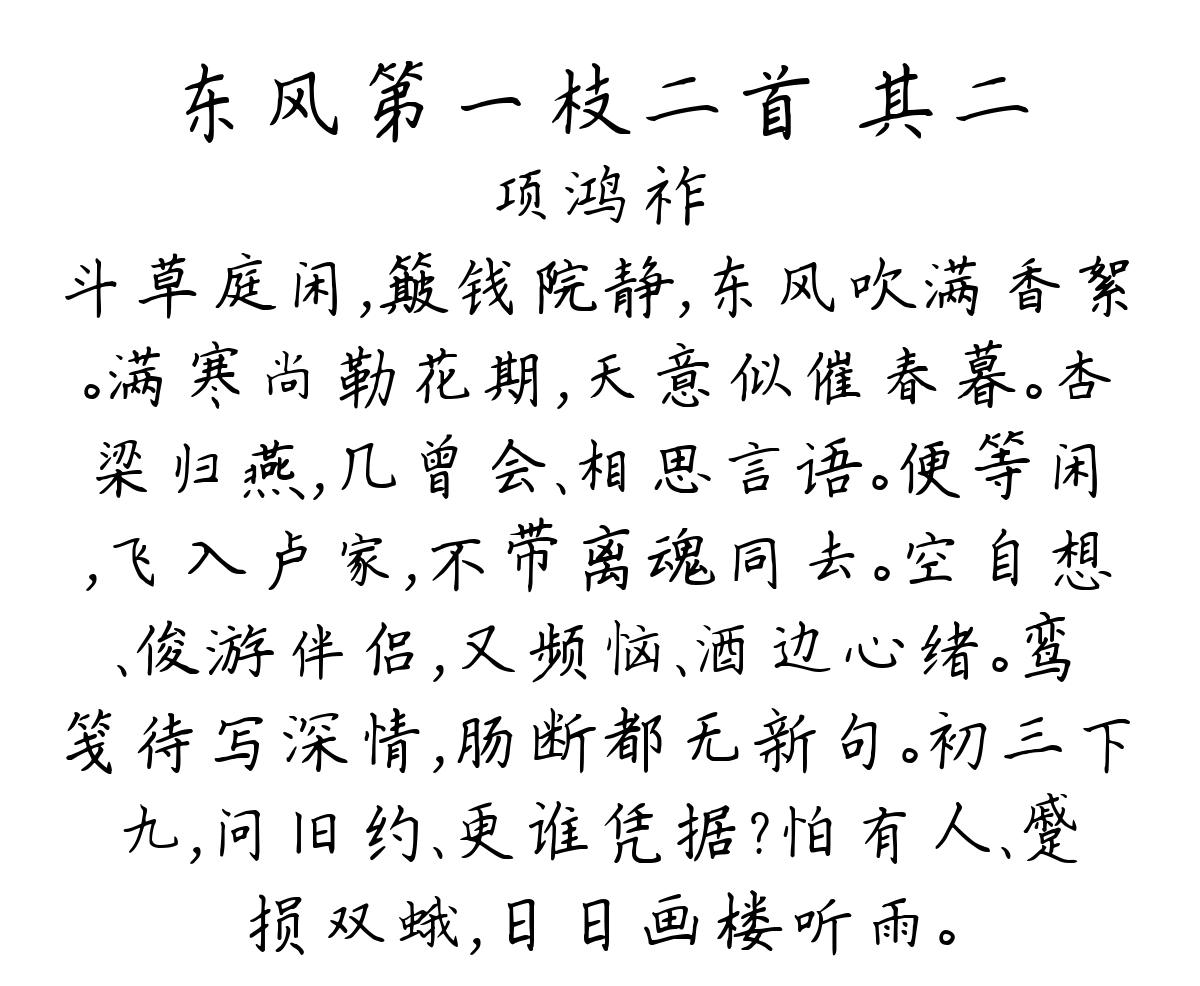 东风第一枝二首 其二
项鸿祚
斗草庭闲,簸钱院静,东风吹满香絮
。满寒尚勒花期,天意似催春暮。杏
梁归燕,几曾会、相思言语。便等闲
,飞入卢家,不带离魂同去。空自想
、俊游伴侣,又频恼、酒边心绪。鸾
笺待写深情,肠断都无新句。初三下
九,问旧约、更谁凭据?怕有人、蹙
损双蛾,日日画楼听雨。